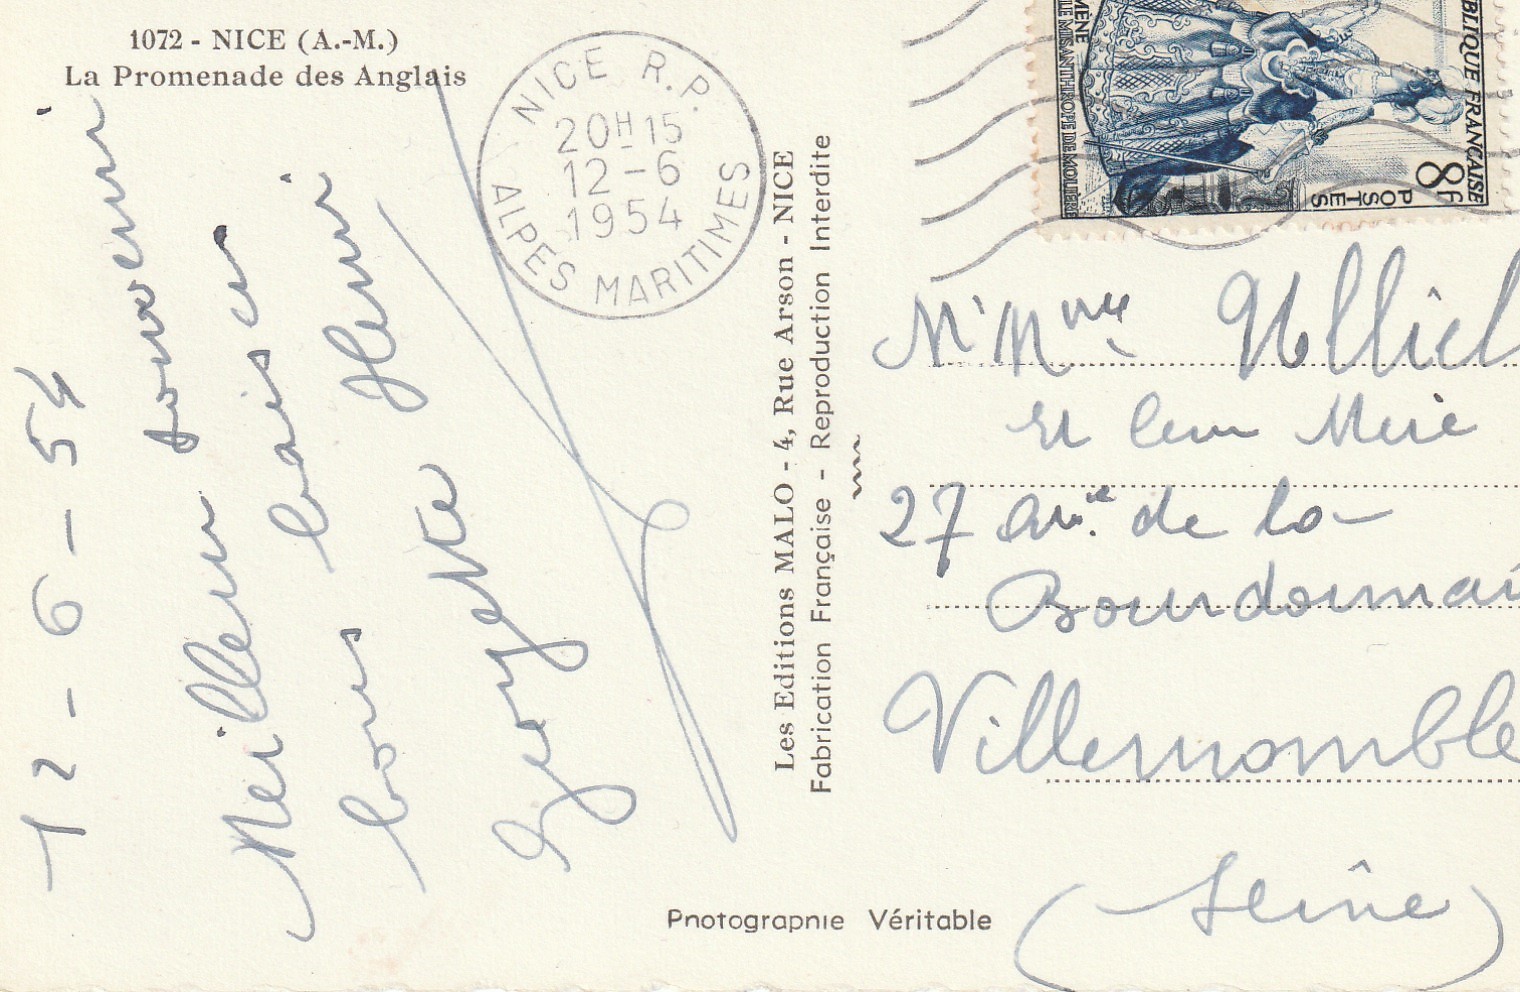 1072 - NICE (A.-M.)
La Promenade des Anglais
NICE R.P.
20H15
12-6
1954
ALPES MARITIMES
12-6-54
Meilleur souvenir
baiser
bons Henri
Georgette
Les Editions MALO - 4, Rue Arson - NICE
Fabrication Française - Reproduction Interdite
Photographie Véritable
MÈNE
LE MISANTHROPE DE MOLIÈRE
BLIQUE FRANÇAISE
8F
POSTES
Mr Mme
et leur Mère
27 Avie de la
Bourdonnai
Villemomble
(Seine)